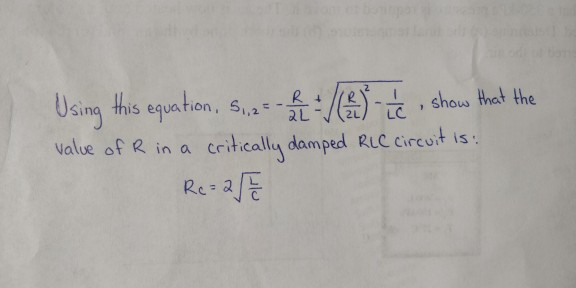 Using this equation, S₁,₂ = -R/2L ± √((R/2L)² - 1/LC) , show that the
value of R in a critically damped RLC circuit is:
Rc = 2√(L/C)